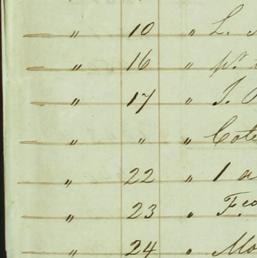 " 10 " L.
" 16 " pr.
" 17 " J.
" " " Cote
" 22 " 1 a
" 23 "
" 24 " Mo